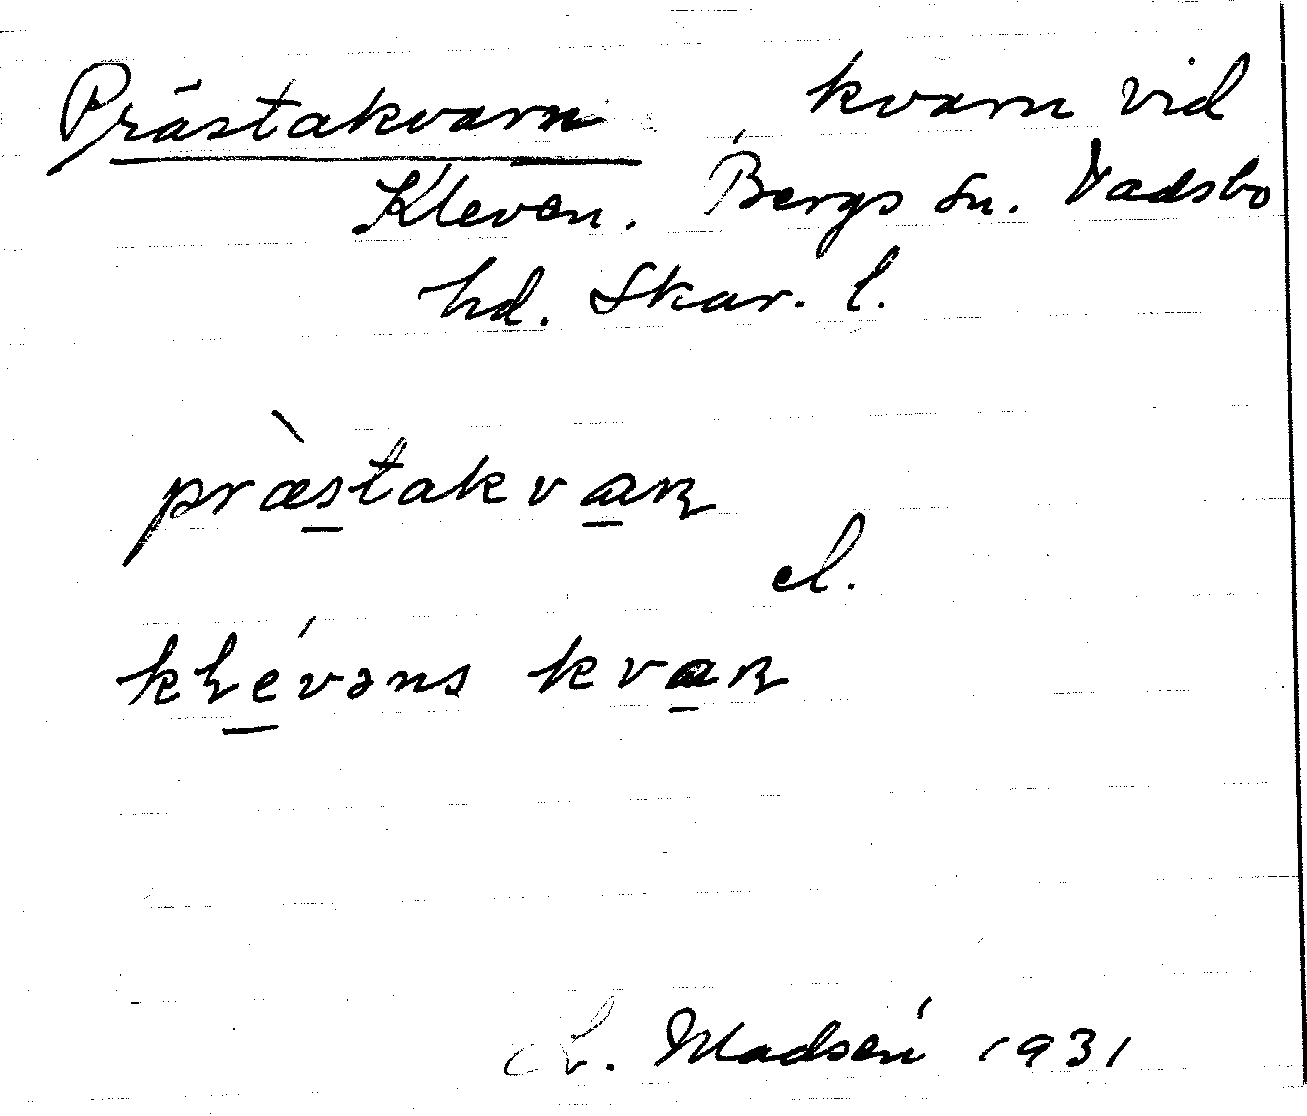 Prästakvarn kvarn vid
Kleven. Bergs sn. Vadsbo
hd. Skar. l.
præ̀stakvaɳ
el.
kɽévəns kvaɳ
L. Madsén 1931